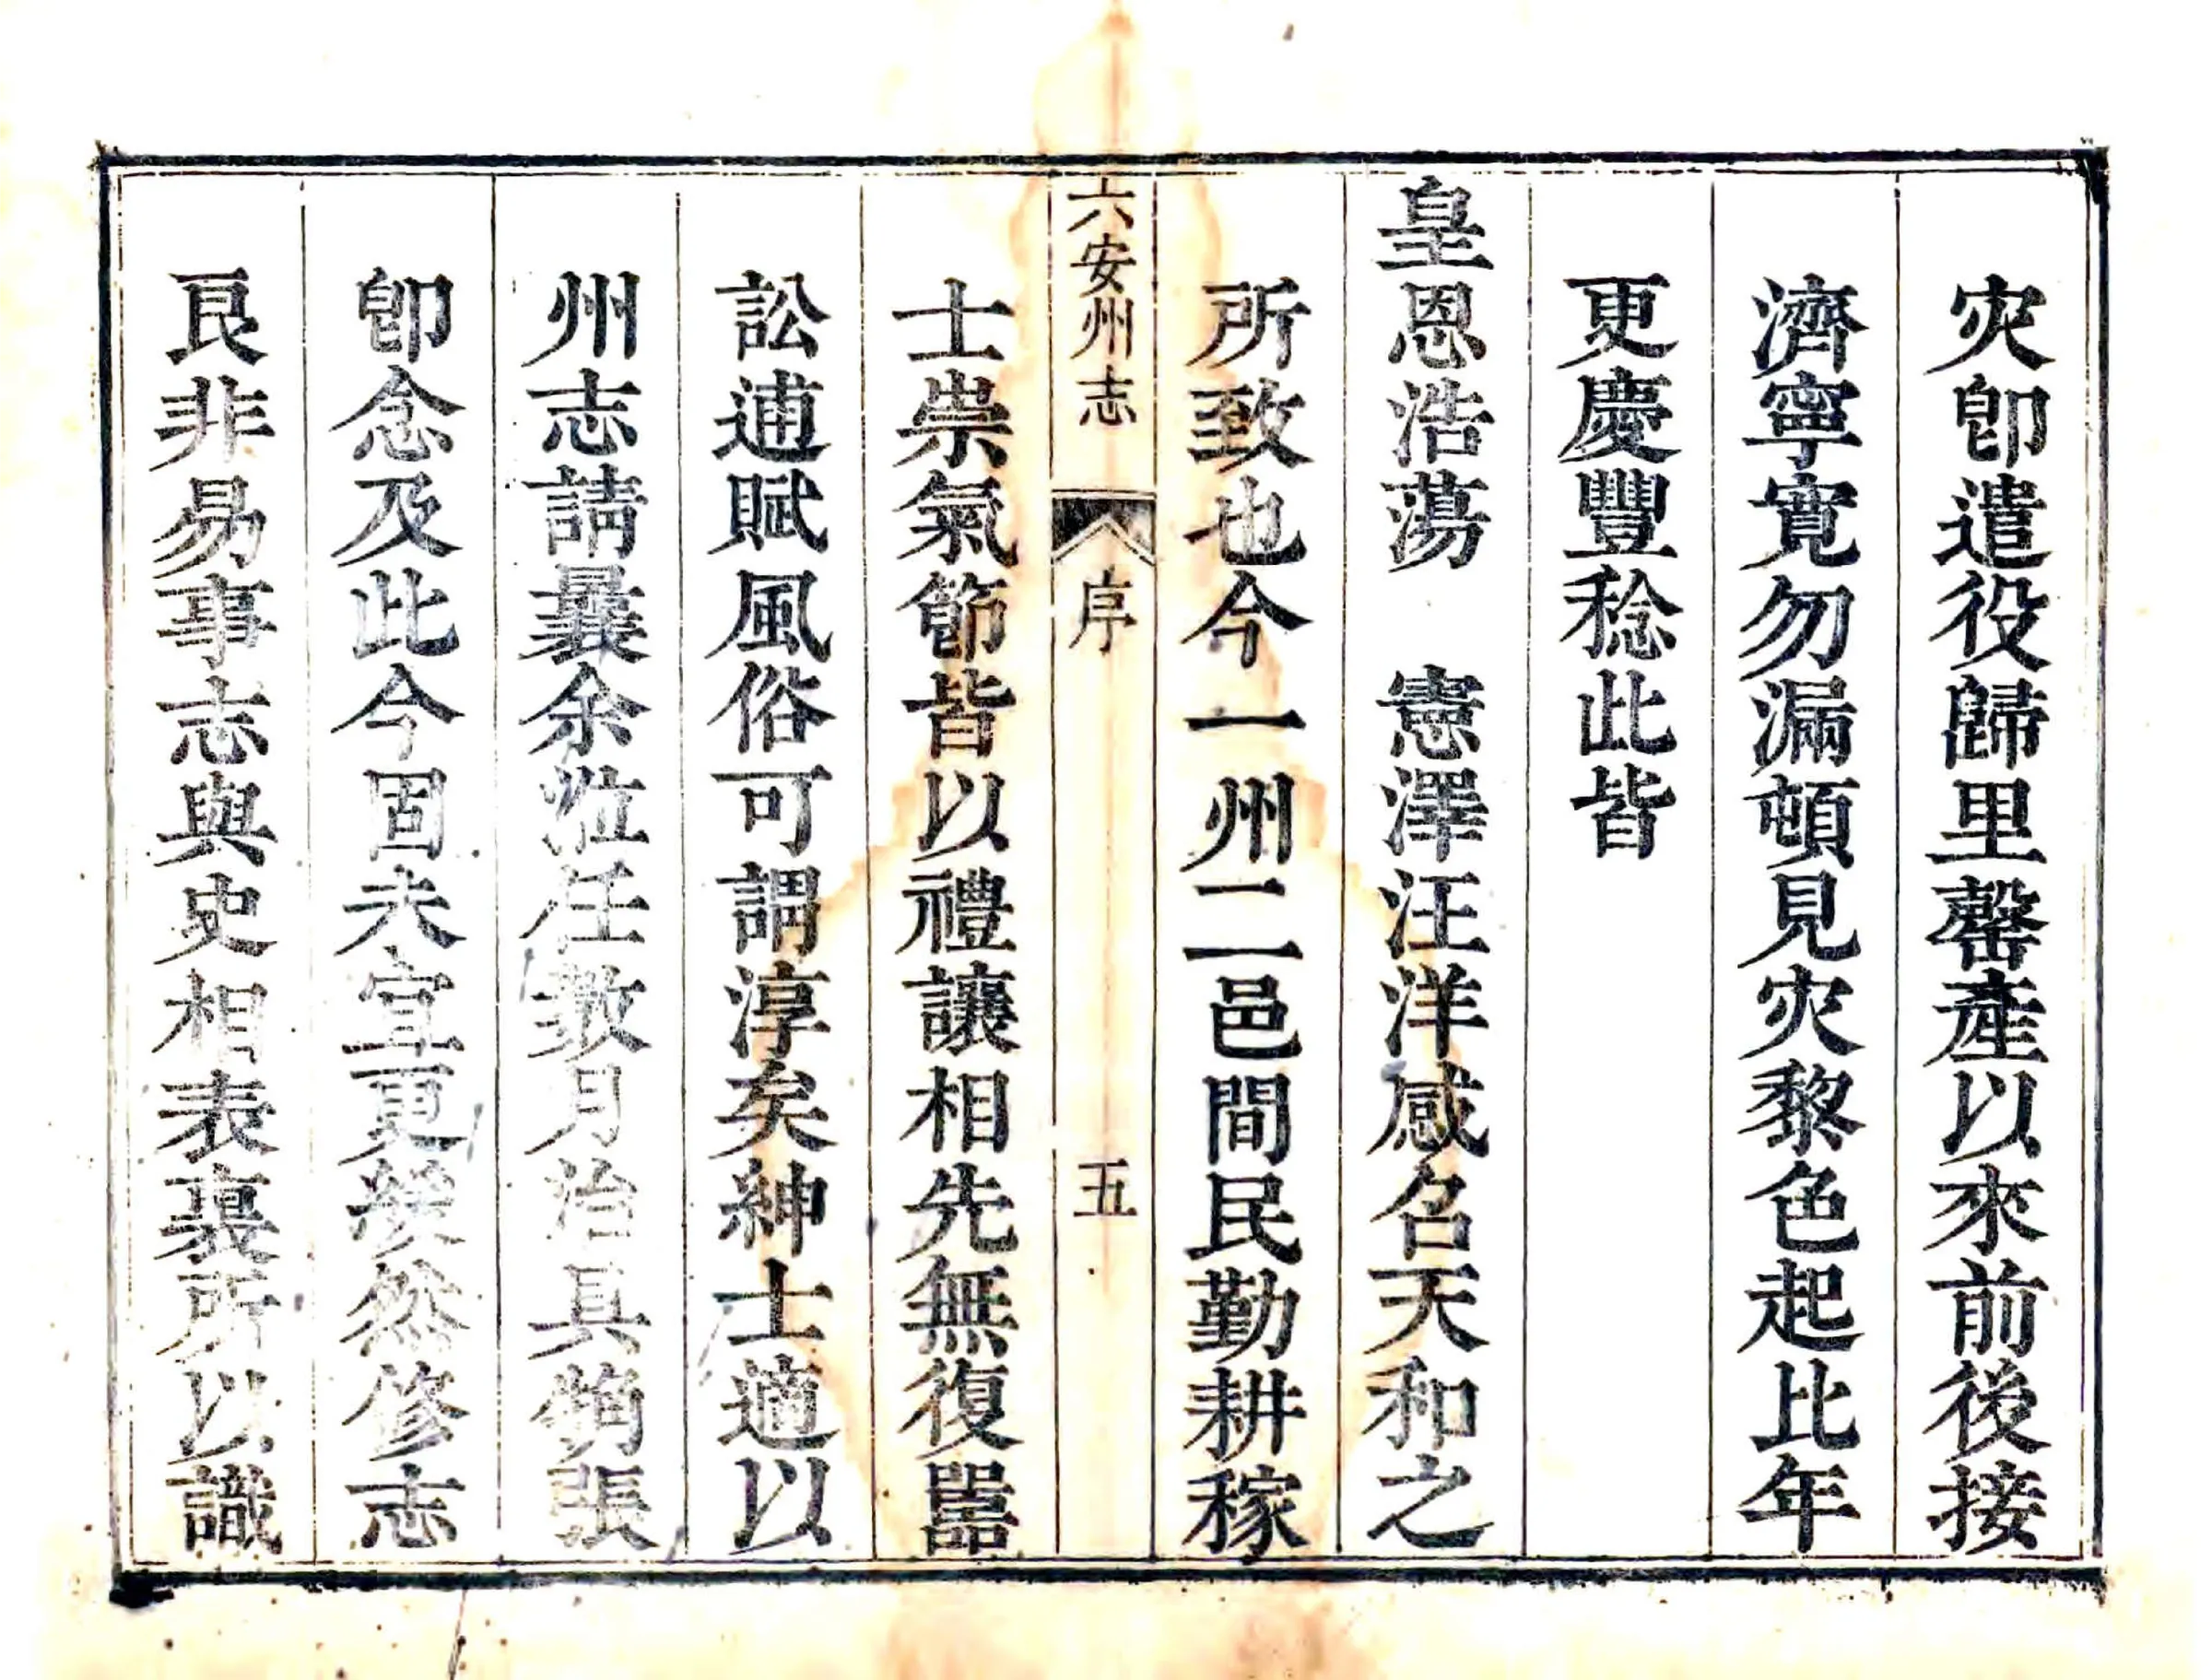 灾卽遣役歸里罄產以來前後接
濟寧寛勿漏頓見灾黎色起比年
更慶豐稔此皆
皇恩浩蕩　憲澤汪洋感名天和之
所致也今一州二邑間民勤耕稼
六安州志　序　五
士崇氣節皆以禮讓相先無復嚚
訟逋賦風俗可謂淳矣紳士適以
州志請曩余涖任數月治具觕張
卽念及此今固未宜更緩然修志
良非易事志與史相表裏所以識